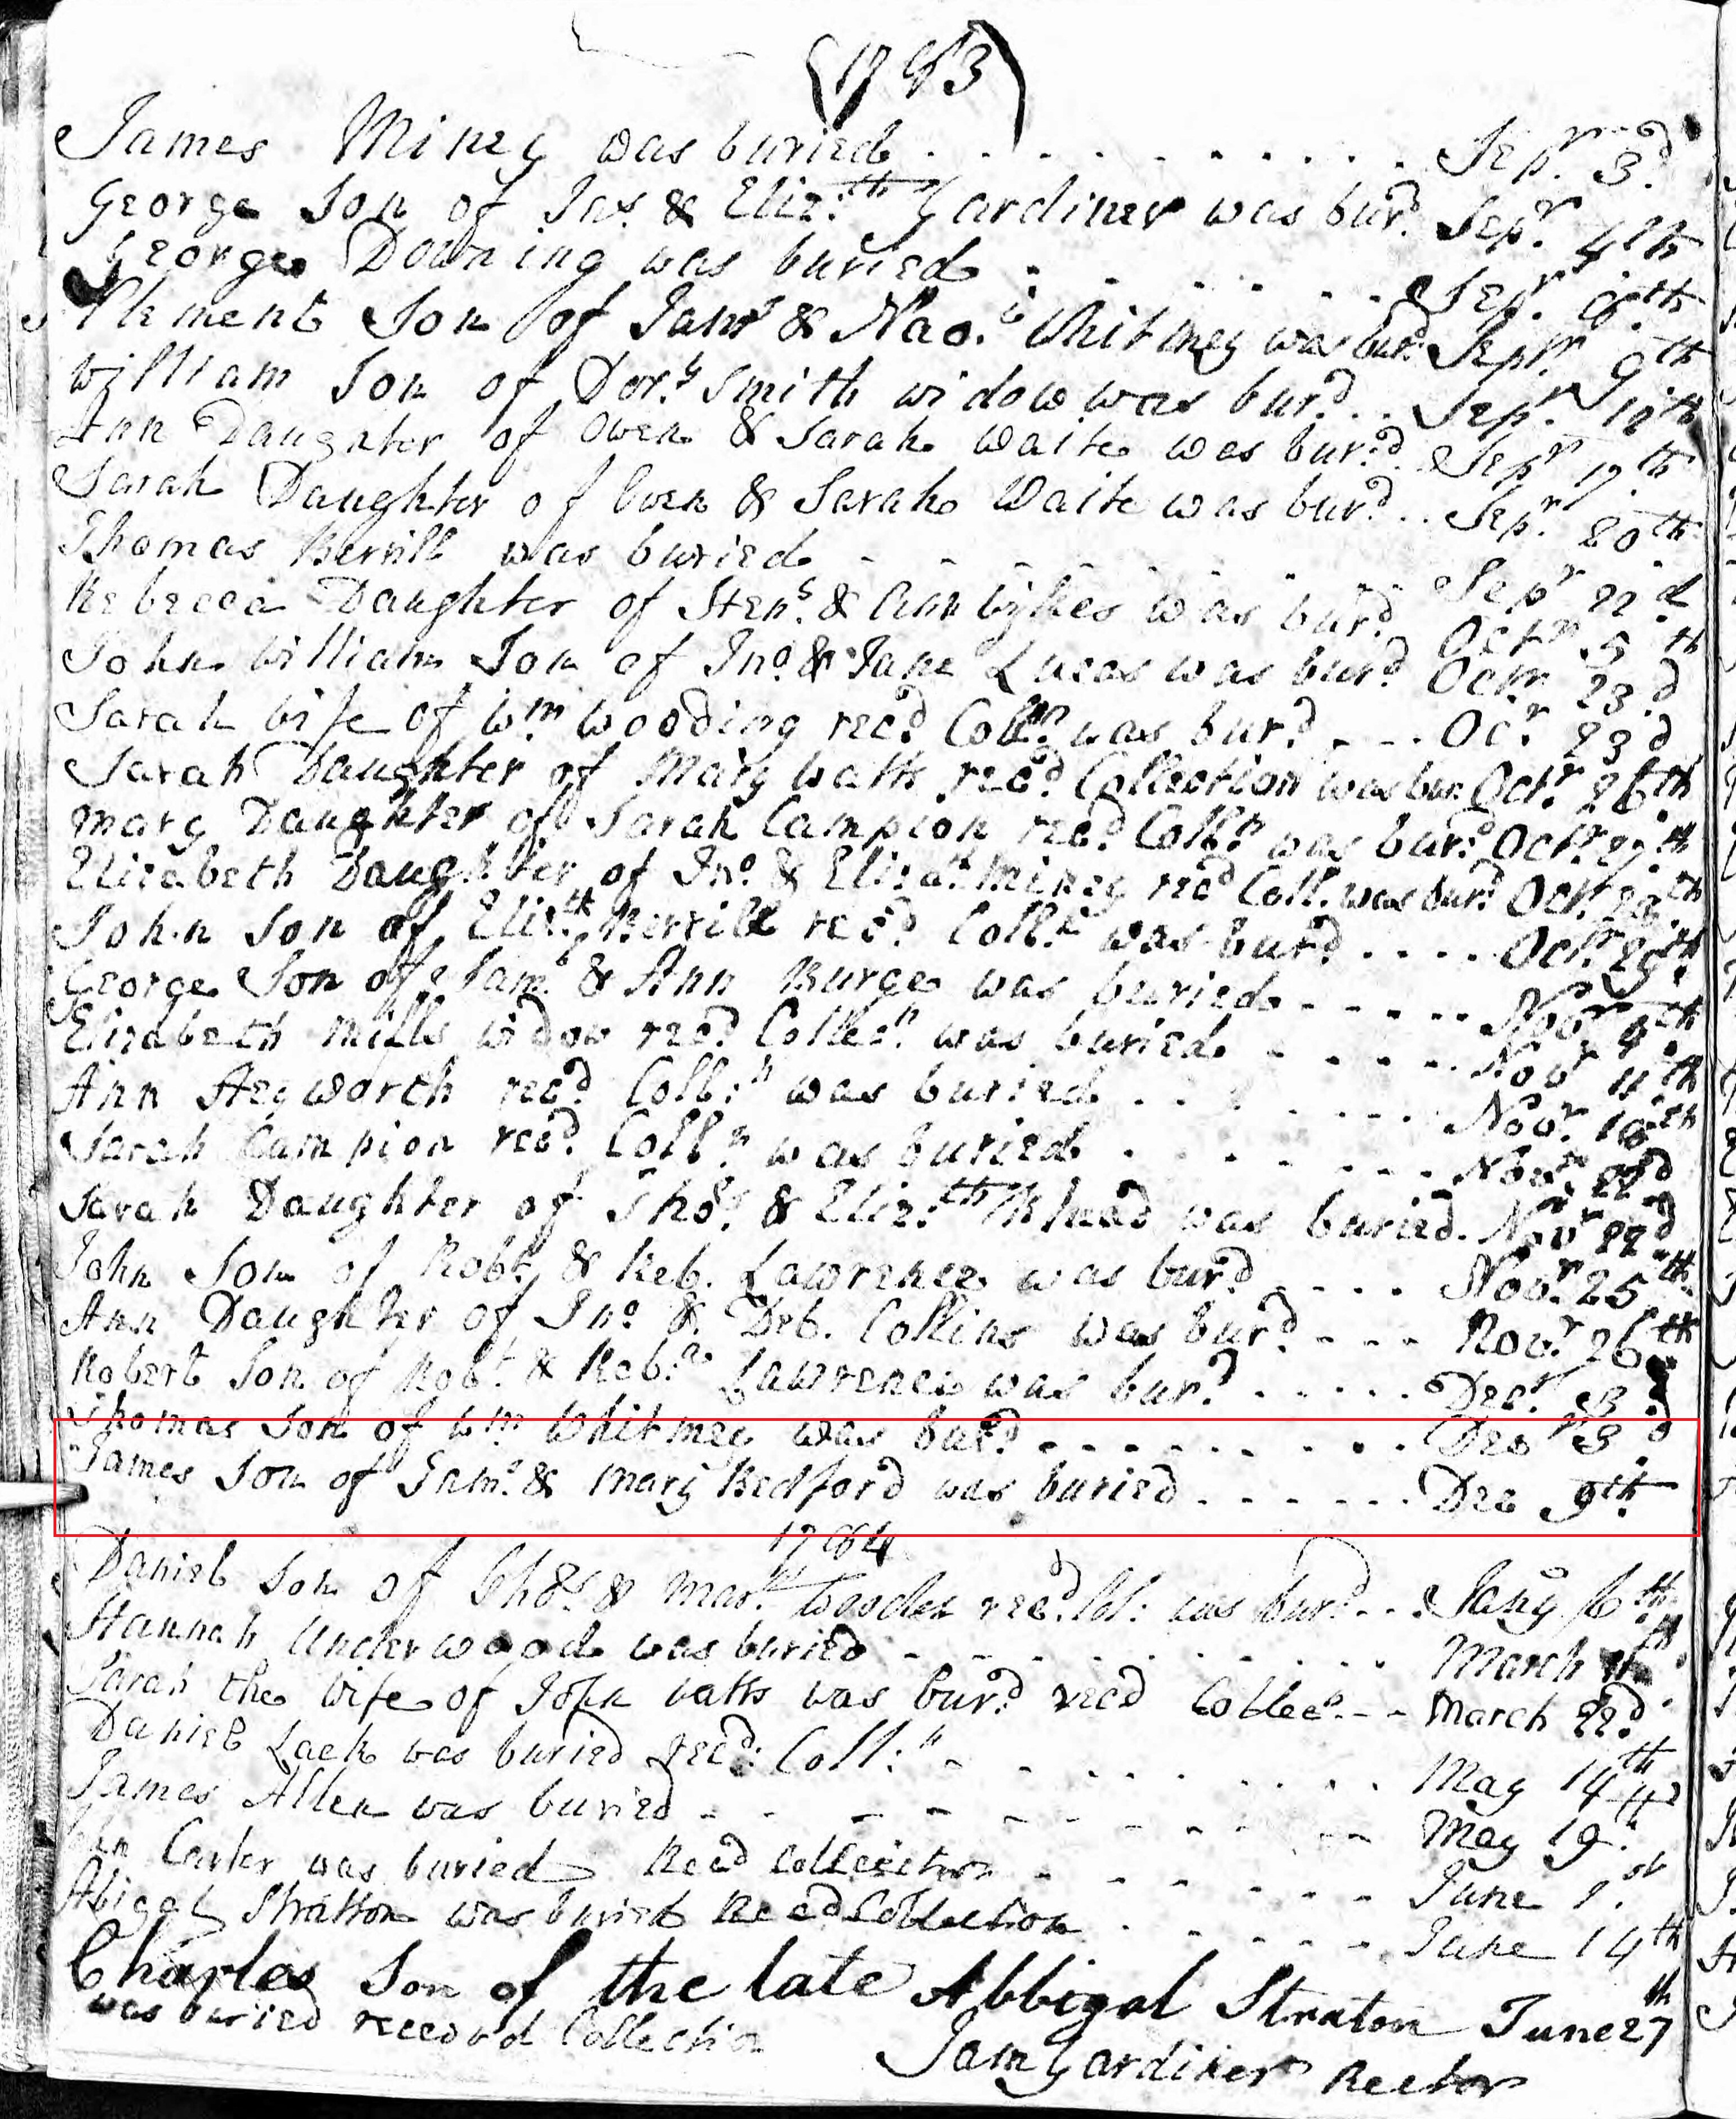 (1763)
James Miney was buried . . . . . . . . . . . Sepr. 3d.
George Son of Jas. & Eliz.th Gardiner was burd. Sepr. 4th
George Downing was buried . . . . . . . Sepr. 8th
Son of Jams & Nao.i Whitmey was burd. Sepr. 9th
William Son of Dory Smith widow was burd. . . Sepr.
Ann Daughter of Owen & Sarah Waite was burd. . Sepr. 17th
Sarah Daughter of Owen & Sarah Waite was burd. . . Sepr. 20th
Thomas Berrill was buried - - - - - - - Sepr. 22d
Rebecca Daughter of Sten.s & Ann Wykes was burd. Octr. 5th
John William Son of Jno. & Jane Lucas was burd. Octr. 23d
Sarah Wife of Wm. Wooding recd. Colln. was burd. - - - Ocr. 23d
Sarah Daughter of Mary Watts recd. Collection was bur. Octr. 26th
Mary Daughter of Sarah Campion recd. Colln. was burd. Octr. 27th
Elizabeth Daughter of Jno. & Elizath. Miney recd Coll. was burd. Octr.
John Son of Eliz.th Berrill recd. Colln. was burd . . . . Octr. 29th
George Son of Saml. & Ann Burge was buried - - - - - Novr. 4th
Elizabeth Mills Widow recd. Collen. was buried . - - - - . Novr. 11th
Ann Heyworth recd. Coll:n was buried . . . . . . . . Novr. 16th
Sarah Campion recd. Colln. was buried . . . . . . . . Novr. 22d
Sarah Daughter of Thos. & Eliz.th was buried. Novr. 22d
John Son of Robt. & Reb. Lawrence was burd . . . . Novr. 25th
Ann Daughter of Jno. & Deb. Collins was burd - - - Novr. 26th
Robert Son of Robt. & Reb.a Lawrence was burd. . . . . . Decr. 3d
Thomas Son of Wm. Whitmey was burd . . . . . . . . Decr 3d
James Son of Sam.l & Mary Bedford was buried . . . . . . Dec 9th
1764
Daniel Son of Thos. & Mary Wooden recd. Col: was burd. . . Jany 6th
Hannah Underwood was buried - - - - - - - March
Sarah the Wife of John Watts was burd. recd Collec.n - - March 22d
Daniel Lack was buried recd: Coll:n - - - - - - - May 14th
James Allen was buried - - - - - - - - May 19th
Carter was buried Recd Collection - - - - - - June 1st
Abigal Stratton was buried Recd Collection . - - - - June 14th
Charles Son of the late Abbigal Straton June 27th
was buried receevd Collection
Jam Gardiner Rector